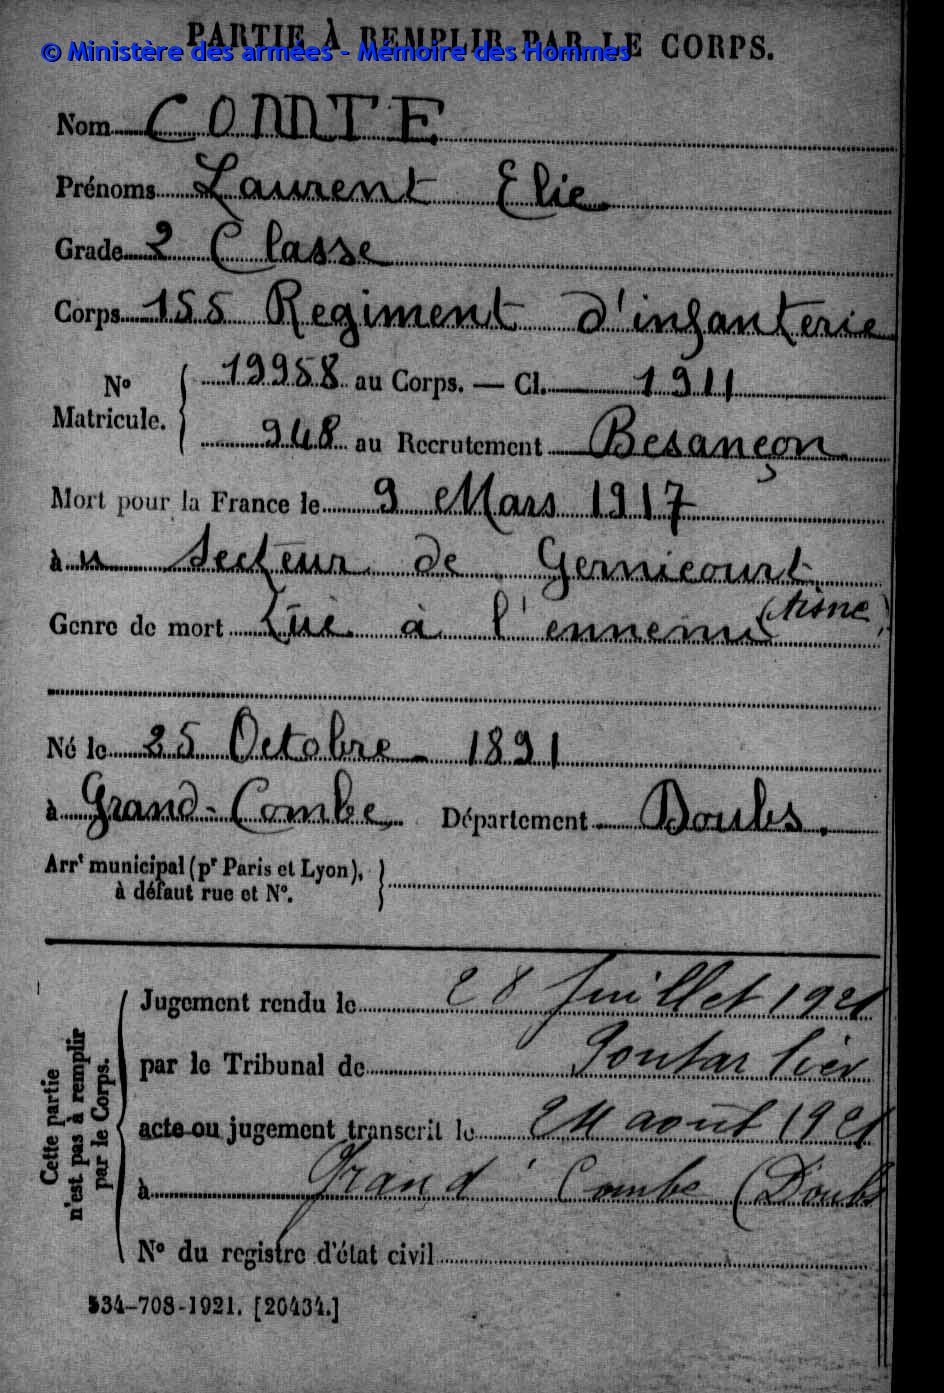 PARTIE À REMPLIR PAR LE CORPS.
© Ministère des armées - Mémoire des Hommes
Nom COMTE
Prénoms Laurent Elie
Grade 2 Classe
Corps 155 Regiment d'infanterie
N° Matricule. 19958 au Corps. — Cl. 1911
948 au Recrutement Besançon
Mort pour la France le 9 Mars 1917
à u Secteur de Gernicourt
(Aisne)
Genre de mort Tué à l'ennemi
Né le 25 Octobre 1891
à Grand-Combe Département Doubs.
Arrt municipal (pr Paris et Lyon),
à défaut rue et N°.
Cette partie
n'est pas à remplir
par le Corps.
Jugement rendu le 28 Juillet 1921
par le Tribunal de Pontarlier
acte ou jugement transcrit le 24 août 1921
à Grand' Combe (Doubs
N° du registre d'état civil
534-708-1921. [20434.]